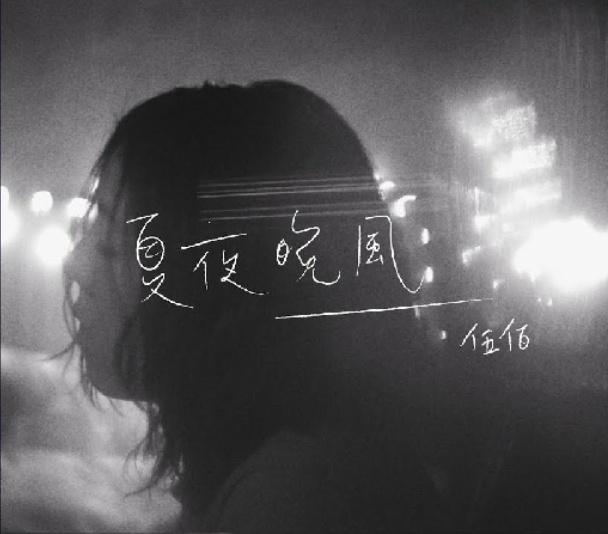 夏夜晚風
伍佰